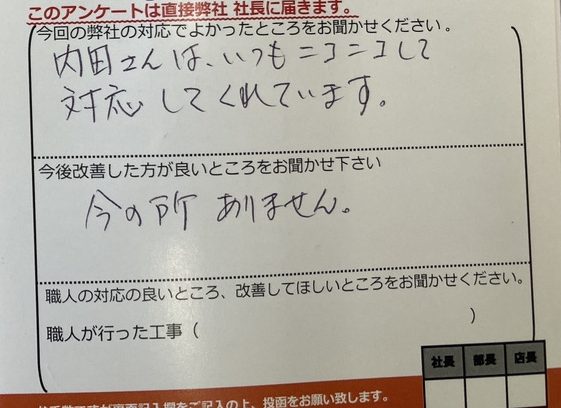 このアンケートは直接弊社 社長に届きます。
今回の弊社の対応でよかったところをお聞かせください。
内田さんは、いつもニコニコして
対応してくれています。
今後改善した方が良いところをお聞かせ下さい
今の所 ありません。
職人の対応の良いところ、改善してほしいところをお聞かせください。
職人が行った工事（ ）
社長 部長 店長
記入欄をご記入の上、投函をお願い致します。